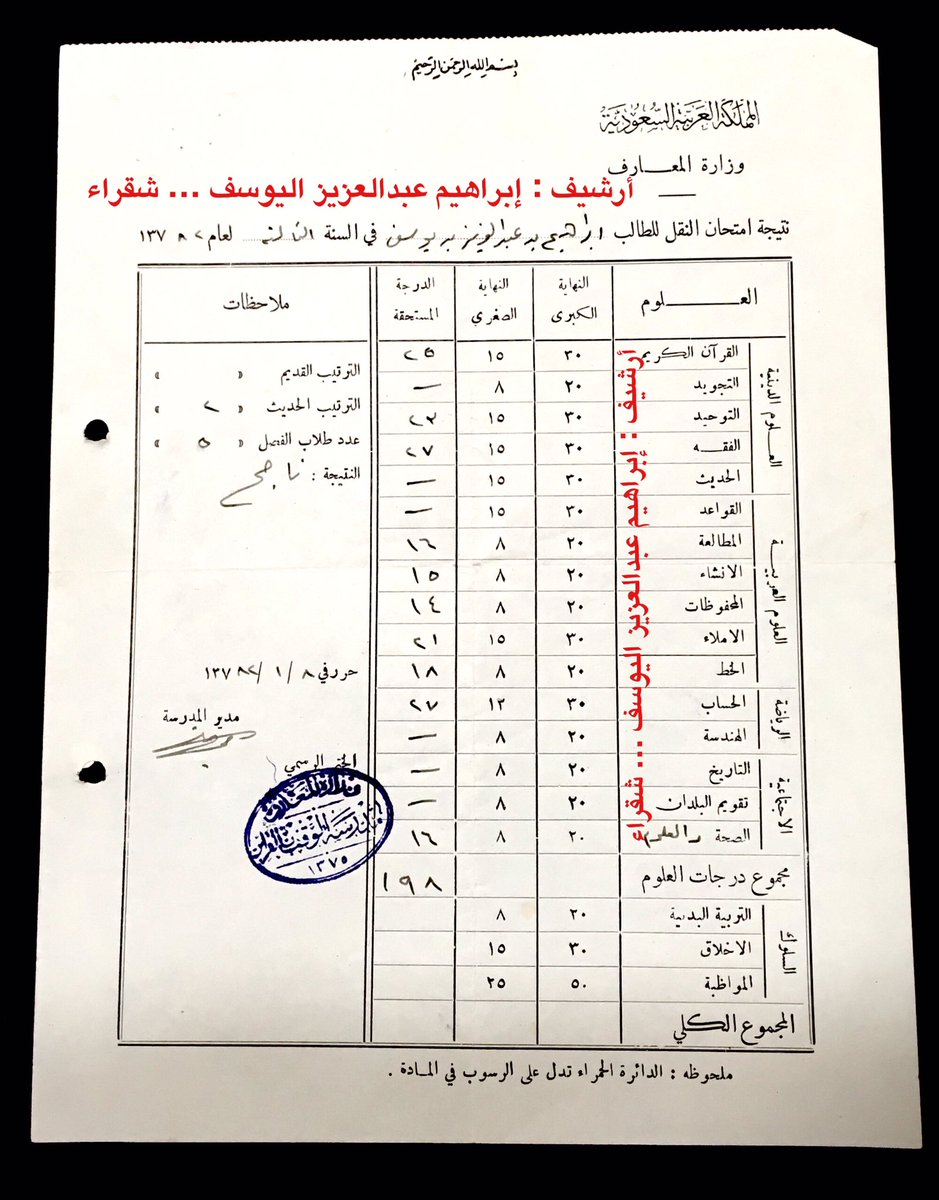 بسم الله الرحمن الرحيم
المملكة العربية السعودية
وزارة المعارف
أرشيف : إبراهيم عبدالعزيز اليوسف ... شقراء
نتيجة امتحان النقل للطالب ابراهيم بن عبدالعزيز بن يوسف في السنة الثالثة لعام ١٣٧٨٢
العلوم النهاية الكبرى النهاية الصغرى الدرجة المستحقة ملاحظات
العلوم الدينية
القرآن الكريم ٣٠ ١٥ ٢٥
التجويد ٢٠ ٨ —
التوحيد ٣٠ ١٥ ٢٣
الفقه ٣٠ ١٥ ٢٧
الحديث ٣٠ ١٥ —
العلوم العربية
القواعد ٣٠ ١٥ —
المطالعة ٢٠ ٨ ١٦
الانشاء ٢٠ ٨ ١٥
المحفوظات ٢٠ ٨ ١٤
الاملاء ٣٠ ١٥ ٢١
الخط ٢٠ ٨ ١٨
الرياضة
الحساب ٣٠ ١٢ ٢٧
الهندسة ٢٠ ٨ —
الاجتماعية
التاريخ ٢٠ ٨ —
تقويم البلدان ٢٠ ٨ —
الصحة والعلوم ٢٠ ٨ ١٦
مجموع درجات العلوم ١٩٨
السلوك
التربية البدنية ٢٠ ٨
الاخلاق ٣٠ ١٥
المواظبة ٥٠ ٢٥
المجموع الكلي
أرشيف : إبراهيم عبدالعزيز اليوسف ... شقراء
الترتيب القديم « »
الترتيب الحديث « ٢ »
عدد طلاب الفصل « ٥ »
النتيجة : ناجح
حرر في ٨ / ١ /
مدير المدرسة
الختم الرسمي
وزارة المعارف
١٣٧٥
ملحوظه : الدائرة الحمراء تدل على الرسوب في المادة .